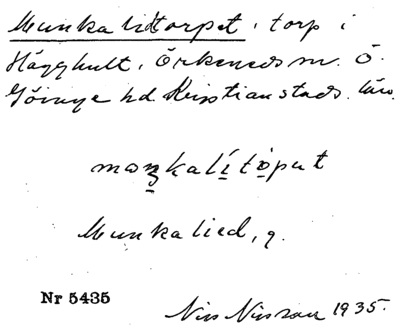 Munkalittorpet, torp i
Hägghult, Örkeneds sn. Ö.
Göinge hd. Kristianstads län.
Munkalied, q.
Nr 5435
Nils Nilsson 1935.